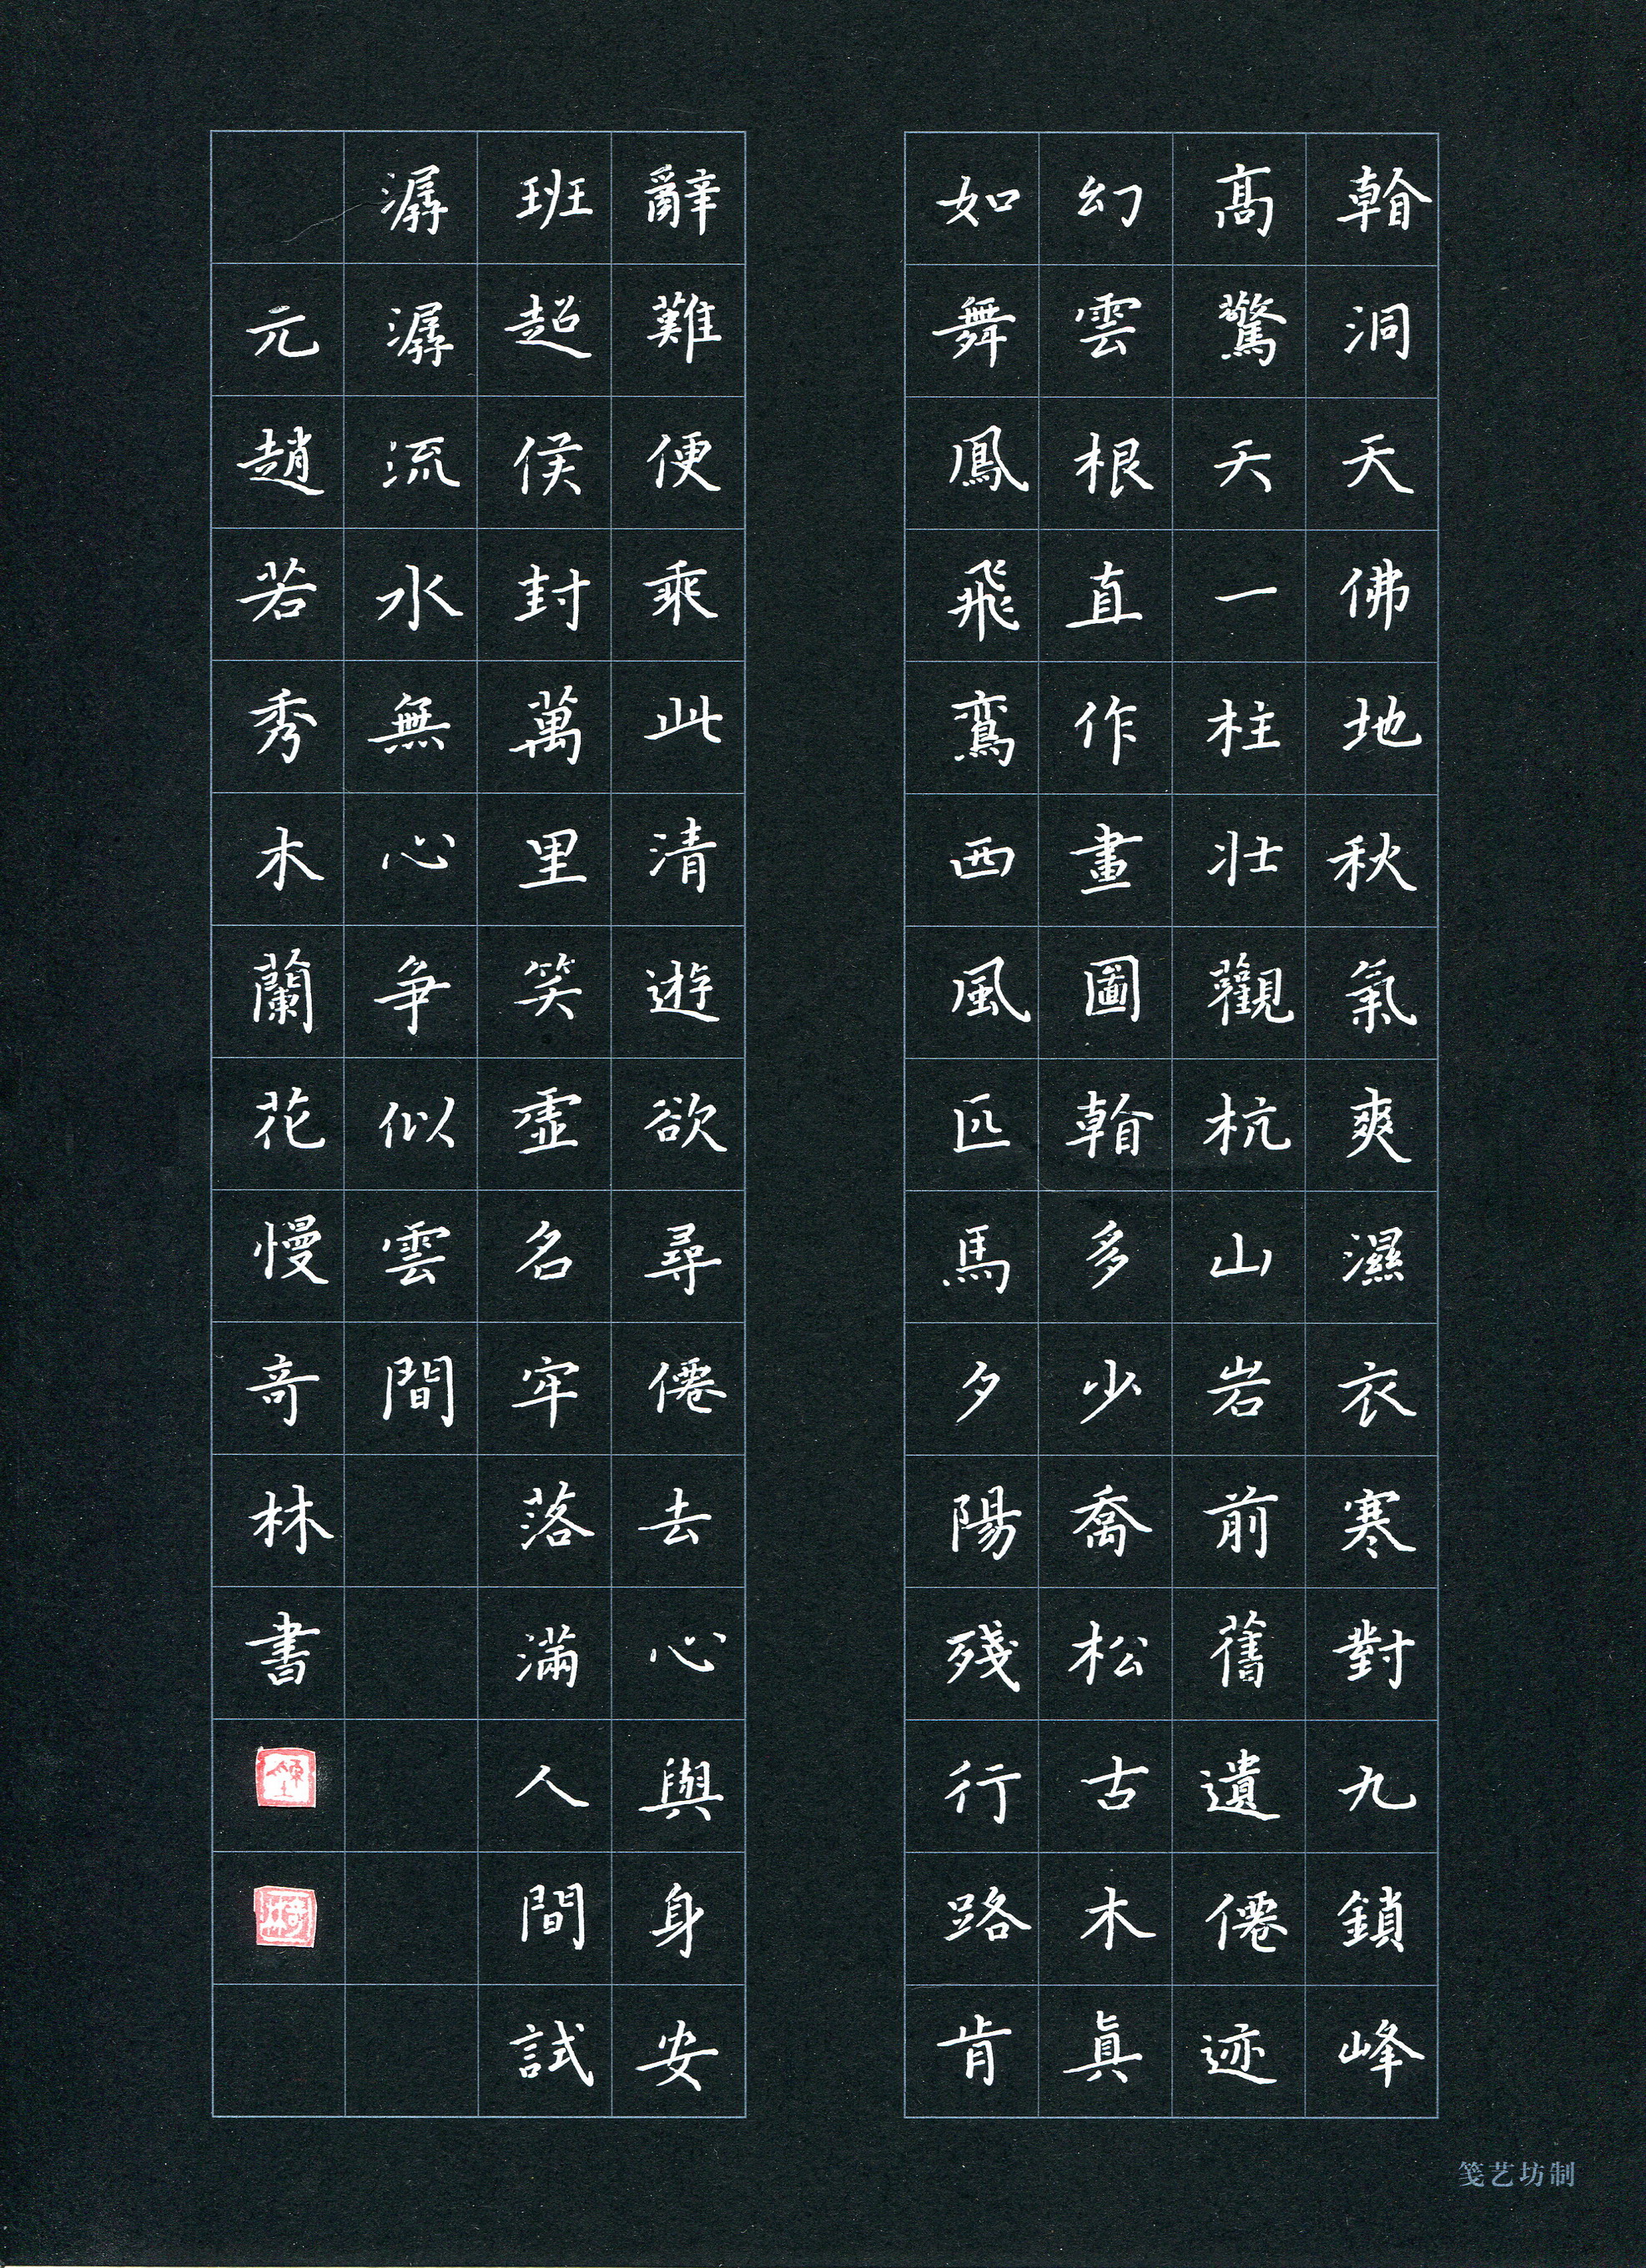 翰洞天佛地秋氣爽濕衣寒對九鎖峰
高驚天一柱壯觀杭山岩前舊遺僊迹
幻雲根直作畫圖翰多少喬松古木真
如舞鳳飛鸞西風匹馬夕陽殘行路肯
辭難便乘此清遊欲尋僊去心與身安
班超侯封萬里笑虛名牢落滿人間試
潺潺流水無心爭似雲間
元趙若秀木蘭花慢奇林書
笺艺坊制